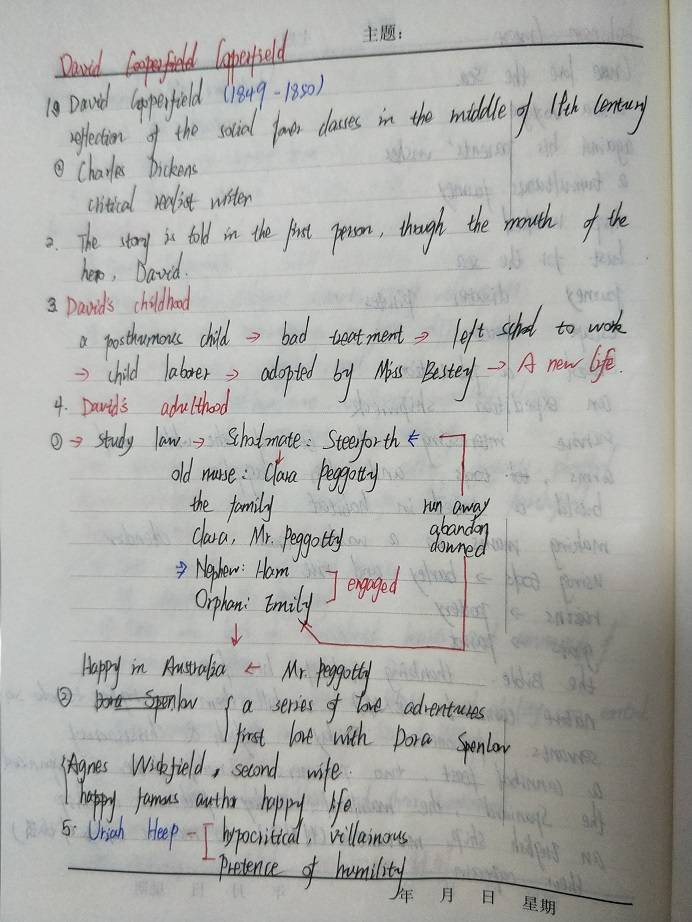 主题:
David Cooperfield Copperfield
1① David Copperfield (1849-1850)
reflection of the social lower classes in the middle of 19th century
② Charles Dickens
critical realist writer
2. The story is told in the first person, through the mouth of the
hero, David.
3. David's childhood
a posthumous child → bad treatment → left school to work
→ child laborer → adopted by Miss Bestey → A new life.
4. David's adulthood
① → study law → Schoolmate: Steerforth ←
old nurse: Clara Peggotty
the family run away
Clara, Mr. Peggotty abandon
downed
⇒ Nephew: Ham
engaged
Orphan: Emily
Happy in Australia ← Mr. Peggotty
② Dora Spenlow { a series of love adventures
first love with Dora Spenlow
{ Agnes Wickfield, second wife.
happy famous author happy life
5. Uriah Heep - [ hypocritical, villainous
Pretence of humility
年 月 日 星期